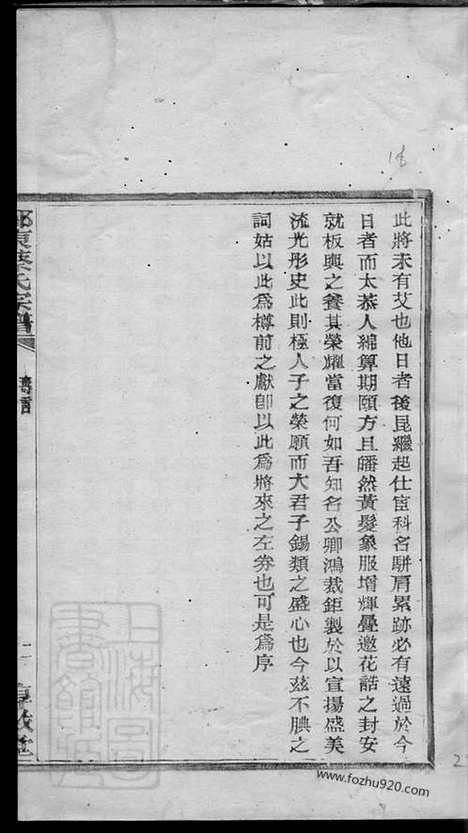 此將未有艾也他日者後昆繼起仕宦科名駢肩累跡必有遠過於今
日者而太恭人綿算期頤方且皤然黃髮象服增輝疊邀花誥之封安
就板輿之養其榮耀當復何如吾知名公卿鴻裁鉅製於以宣揚盛美
流光彤史此則極人子之榮願而大君子錫類之盛心也今玆不腆之
詞姑以此為樽前之獻卽以此為將來之左券也可是為序
東蔡氏宗譜
壽言
上海圖書館藏
www.fozhu920.com